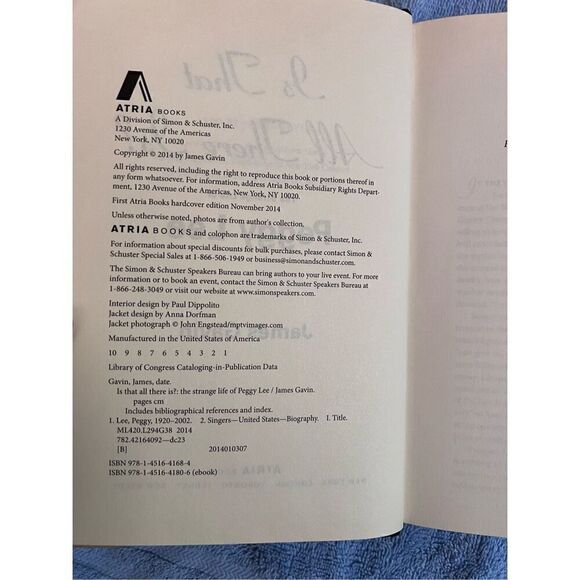 ATRIA BOOKS
A Division of Simon & Schuster, Inc.
1230 Avenue of the Americas
New York, NY 10020
Copyright © 2014 by James Gavin
All rights reserved, including the right to reproduce this book or portions thereof in
any form whatsoever. For information, address Atria Books Subsidiary Rights Depart-
ment, 1230 Avenue of the Americas, New York, NY 10020.
First Atria Books hardcover edition November 2014
Unless otherwise noted, photos are from author's collection.
ATRIA BOOKS and colophon are trademarks of Simon & Schuster, Inc.
For information about special discounts for bulk purchases, please contact Simon &
Schuster Special Sales at 1-866-506-1949 or business@simonandschuster.com
The Simon & Schuster Speakers Bureau can bring authors to your live event. For more
information or to book an event, contact the Simon & Schuster Speakers Bureau at
1-866-248-3049 or visit our website at www.simonspeakers.com.
Interior design by Paul Dippolito
Jacket design by Anna Dorfman
Jacket photograph © John Engstead/mptvimages.com
Manufactured in the United States of America
10 9 8 7 6 5 4 3 2 1
Library of Congress Cataloging-in-Publication Data
Gavin, James, date.
Is that all there is?: the strange life of Peggy Lee / James Gavin.
pages cm
Includes bibliographical references and index.
1. Lee, Peggy, 1920–2002. 2. Singers—United States—Biography. I. Title.
ML420.L294G38 2014
782.42164092—dc23
[B] 2014010307
ISBN 978-1-4516-4168-4
ISBN 978-1-4516-4180-6 (ebook)